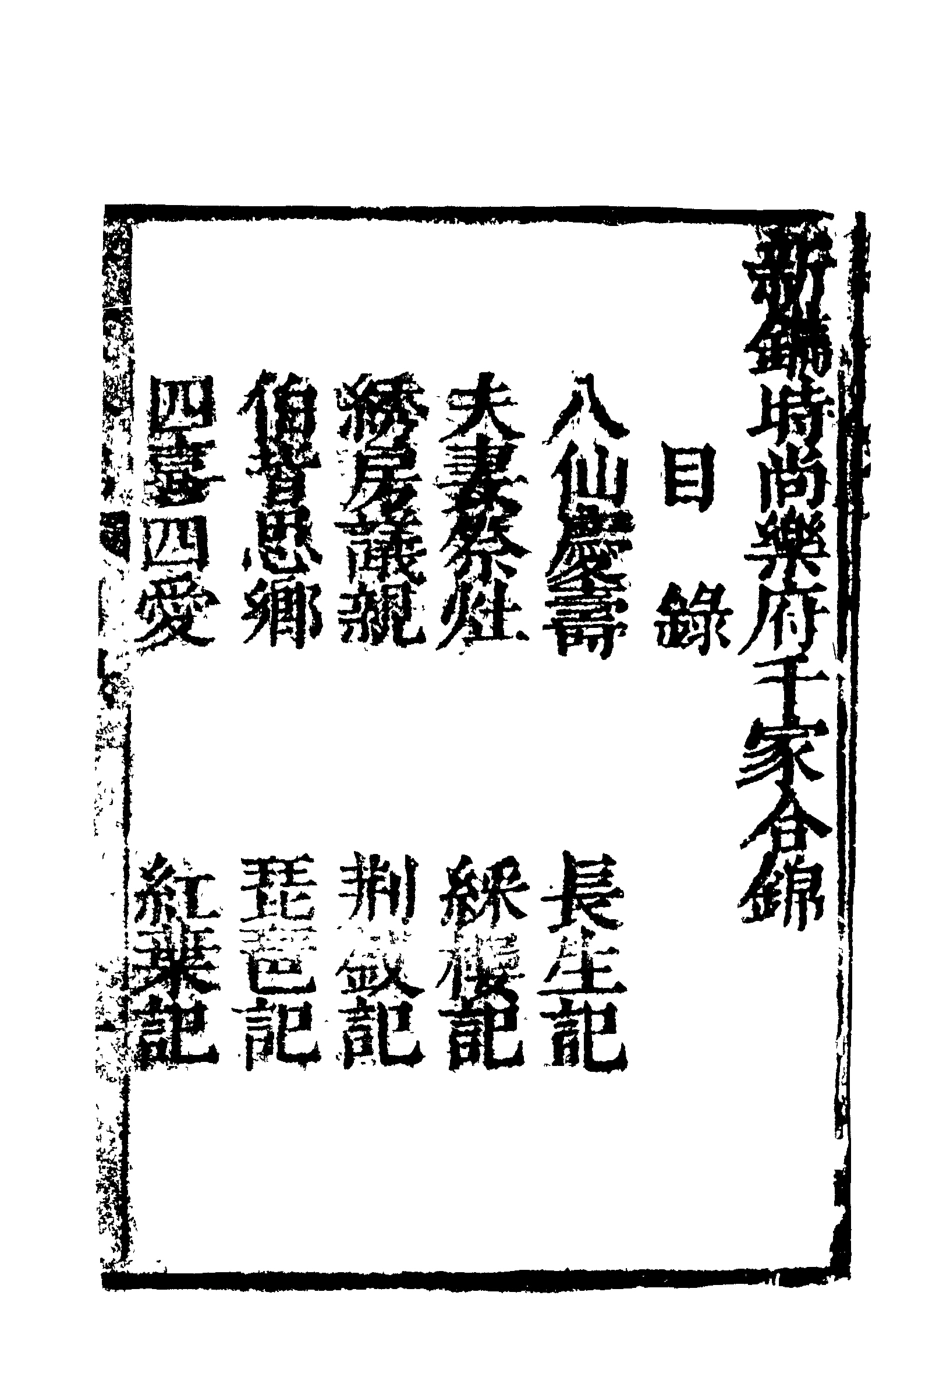 新鐫時尚樂府千家合錦
目錄
八仙慶壽 長生記
夫妻祭灶 綵樓記
綉房議親 荆釵記
伯喈思鄉 琵琶記
四喜四愛 紅葉記